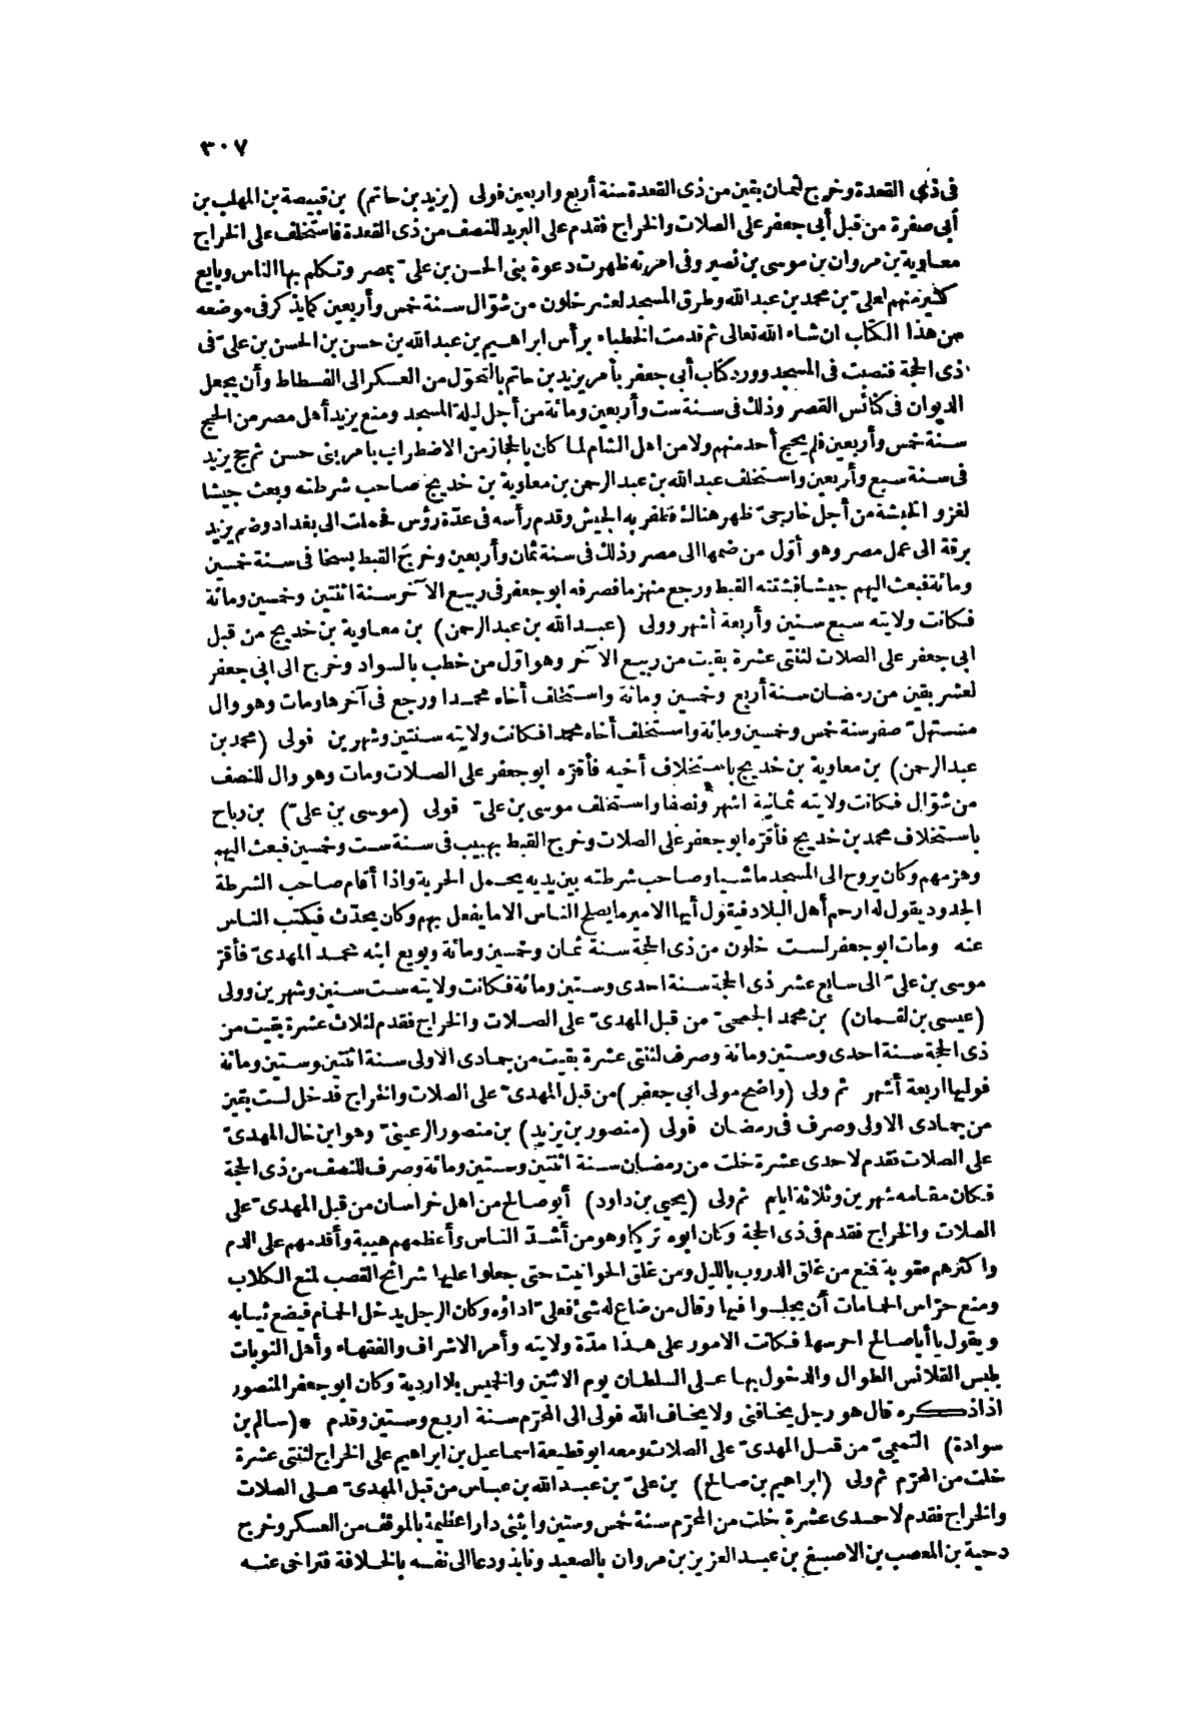 ٣٠٧
فى ذى القعدة وخرج لثمان بقين من ذى القعدة سنة أربع واربعين فولى (يزيد بن حاتم) بن قبيصة بن المهلب بن
أبى صفرة من قبل أبى جعفر على الصلات والخراج فقدم على البريد للنصف من ذى القعدة فاستخلف على الخراج
معاوية بن مروان بن موسى بن نصير وفى امرته ظهرت دعوة بنى الحسن بن علىّ بمصر وتكلم بها الناس وبايع
كثير منهم لعلىّ بن محمد بن عبد الله وطرق المسجد لعشر خلون من شوّال سنة خمس وأربعين كما يذكر فى موضعه
من هذا الكتاب ان شاء الله تعالى ثم قدمت الخطباء برأس ابراهيم بن عبد الله بن حسن بن الحسن بن علىّ فى
ذى الحجة فنصبت فى المسجد وورد كتاب أبى جعفر يأمر يزيد بن حاتم بالتحوّل من العسكر الى الفسطاط وأن يجعل
الديوان فى كنائس القصر وذلك فى سنة ست وأربعين ومائة من أجل ليلة المسجد ومنع يزيد أهل مصر من الحج
سنة خمس وأربعين فلم يحج أحد منهم ولا من اهل الشام لما كان بالحجاز من الاضطراب بامر بنى حسن ثم حج يزيد
فى سنة سبع وأربعين واستخلف عبد الله بن عبد الرحمن بن معاوية بن خديج صاحب شرطته وبعث جيشا
لغزو الحبشة من أجل خارجىّ ظهر هناك فظفر به الجيش وقدم رأسه فى عدّة رؤس فحملت الى بغداد وضم يزيد
برقة الى عمل مصر وهو أوّل من ضمها الى مصر وذلك فى سنة ثمان وأربعين وخرج القبط بسخا فى سنة خمسين
ومائة فبعث اليهم جيشا فشتته القبط ورجع منهزما فصرفه ابو جعفر فى ربيع الآخر سنة اثنتين وخمسين ومائة
فكانت ولايته سبع سنين وأربعة أشهر وولى (عبد الله بن عبد الرحمن) بن معاوية بن خديج من قبل
ابى جعفر على الصلات لثنتى عشرة بقيت من ربيع الآخر وهو اوّل من خطب بالسواد وخرج الى ابى جعفر
لعشر بقين من رمضان سنة أربع وخمسين ومائة واستخلف أخاه محمدا ورجع فى آخرها ومات وهو وال
مستهلّ صفر سنة خمس وخمسين ومائة واستخلف أخاه محمدا فكانت ولايته سنتين وشهرين فولى (محمد بن
عبد الرحمن) بن معاوية بن خديج باستخلاف أخيه فأقرّه ابو جعفر على الصلات ومات وهو وال للنصف
من شوّال فكانت ولايته ثمانية اشهر ونصفا واستخلف موسى بن علىّ فولى (موسى بن علىّ) بن رباح
باستخلاف محمد بن خديج فأقرّه ابو جعفر على الصلات وخرج القبط بهبيب فى سنة ست وخمسين فبعث اليهم
وهزمهم وكان يروح الى المسجد ماشيا وصاحب شرطته بين يديه يحمل الحربة واذا أقام صاحب الشرطة
الحدود يقول له ارحم أهل البلاد فيقول أيها الامير ما يصلح الناس الا ما يفعل بهم وكان يحدّث فيكتب الناس
عنه ومات ابو جعفر لست خلون من ذى الحجة سنة ثمان وخمسين ومائة وبويع ابنه محمد المهدىّ فأقرّ
موسى بن علىّ الى سابع عشر ذى الحجة سنة احدى وستين ومائة فكانت ولايته ست سنين وشهرين وولى
(عيسى بن لقمان) بن محمد الجمحىّ من قبل المهدىّ على الصلات والخراج فقدم لثلاث عشرة بقيت من
ذى الحجة سنة احدى وستين ومائة وصرف لثنتى عشرة بقيت من جمادى الاولى سنة اثنتين وستين ومائة
فوليها اربعة أشهر ثم ولى (واضح مولى ابى جعفر) من قبل المهدىّ على الصلات والخراج فدخل لست بقين
من جمادى الاولى وصرف فى رمضان فولى (منصور بن يزيد) بن منصور الرعينىّ وهو ابن خال المهدىّ
على الصلات فقدم لاحدى عشرة خلت من رمضان سنة اثنتين وستين ومائة وصرف للنصف من ذى الحجة
فكان مقامه شهرين وثلاثة ايام ثم ولى (يحيى بن داود) أبو صالح من اهل خراسان من قبل المهدىّ على
الصلات والخراج فقدم فى ذى الحجة وكان ابوه تركيا وهو من أشدّ الناس وأعظمهم هيبة وأقدمهم على الدم
واكثرهم عقوبة فمنع من غلق الدروب بالليل ومن غلق الحوانيت حتى جعلوا عليها شرائح القصب لمنع الكلاب
ومنع حرّاس الحمامات أن يجلسوا فيها وقال من ضاع له شئ فعلىّ اداؤه وكان الرجل يدخل الحمام فيضع ثيابه
ويقول يا أبا صالح احرسها فكانت الامور على هذا مدّة ولايته وأمر الاشراف والفقهاء وأهل النوبات
بلبس القلانس الطوال والدخول بها على السلطان يوم الاثنين والخميس بلا اردية وكان ابو جعفر المنصور
اذا ذكره قال هو رجل يخافنى ولا يخاف الله فولى الى المحرّم سنة اربع وستين وقدم *(سالم بن
سوادة) التميمىّ من قبل المهدىّ على الصلات ومعه ابو قطيعة اسماعيل بن ابراهيم على الخراج لثنتى عشرة
خلت من المحرّم ثم ولى (ابراهيم بن صالح) بن علىّ بن عبد الله بن عباس من قبل المهدىّ على الصلات
والخراج فقدم لاحدى عشرة خلت من المحرّم سنة خمس وستين وابتنى دارا عظيمة بالموقف من العسكر وخرج
دحية بن المعصب بن الاصبغ بن عبد العزيز بن مروان بالصعيد ونابذ ودعا الى نفسه بالخلافة فتراخى عنه